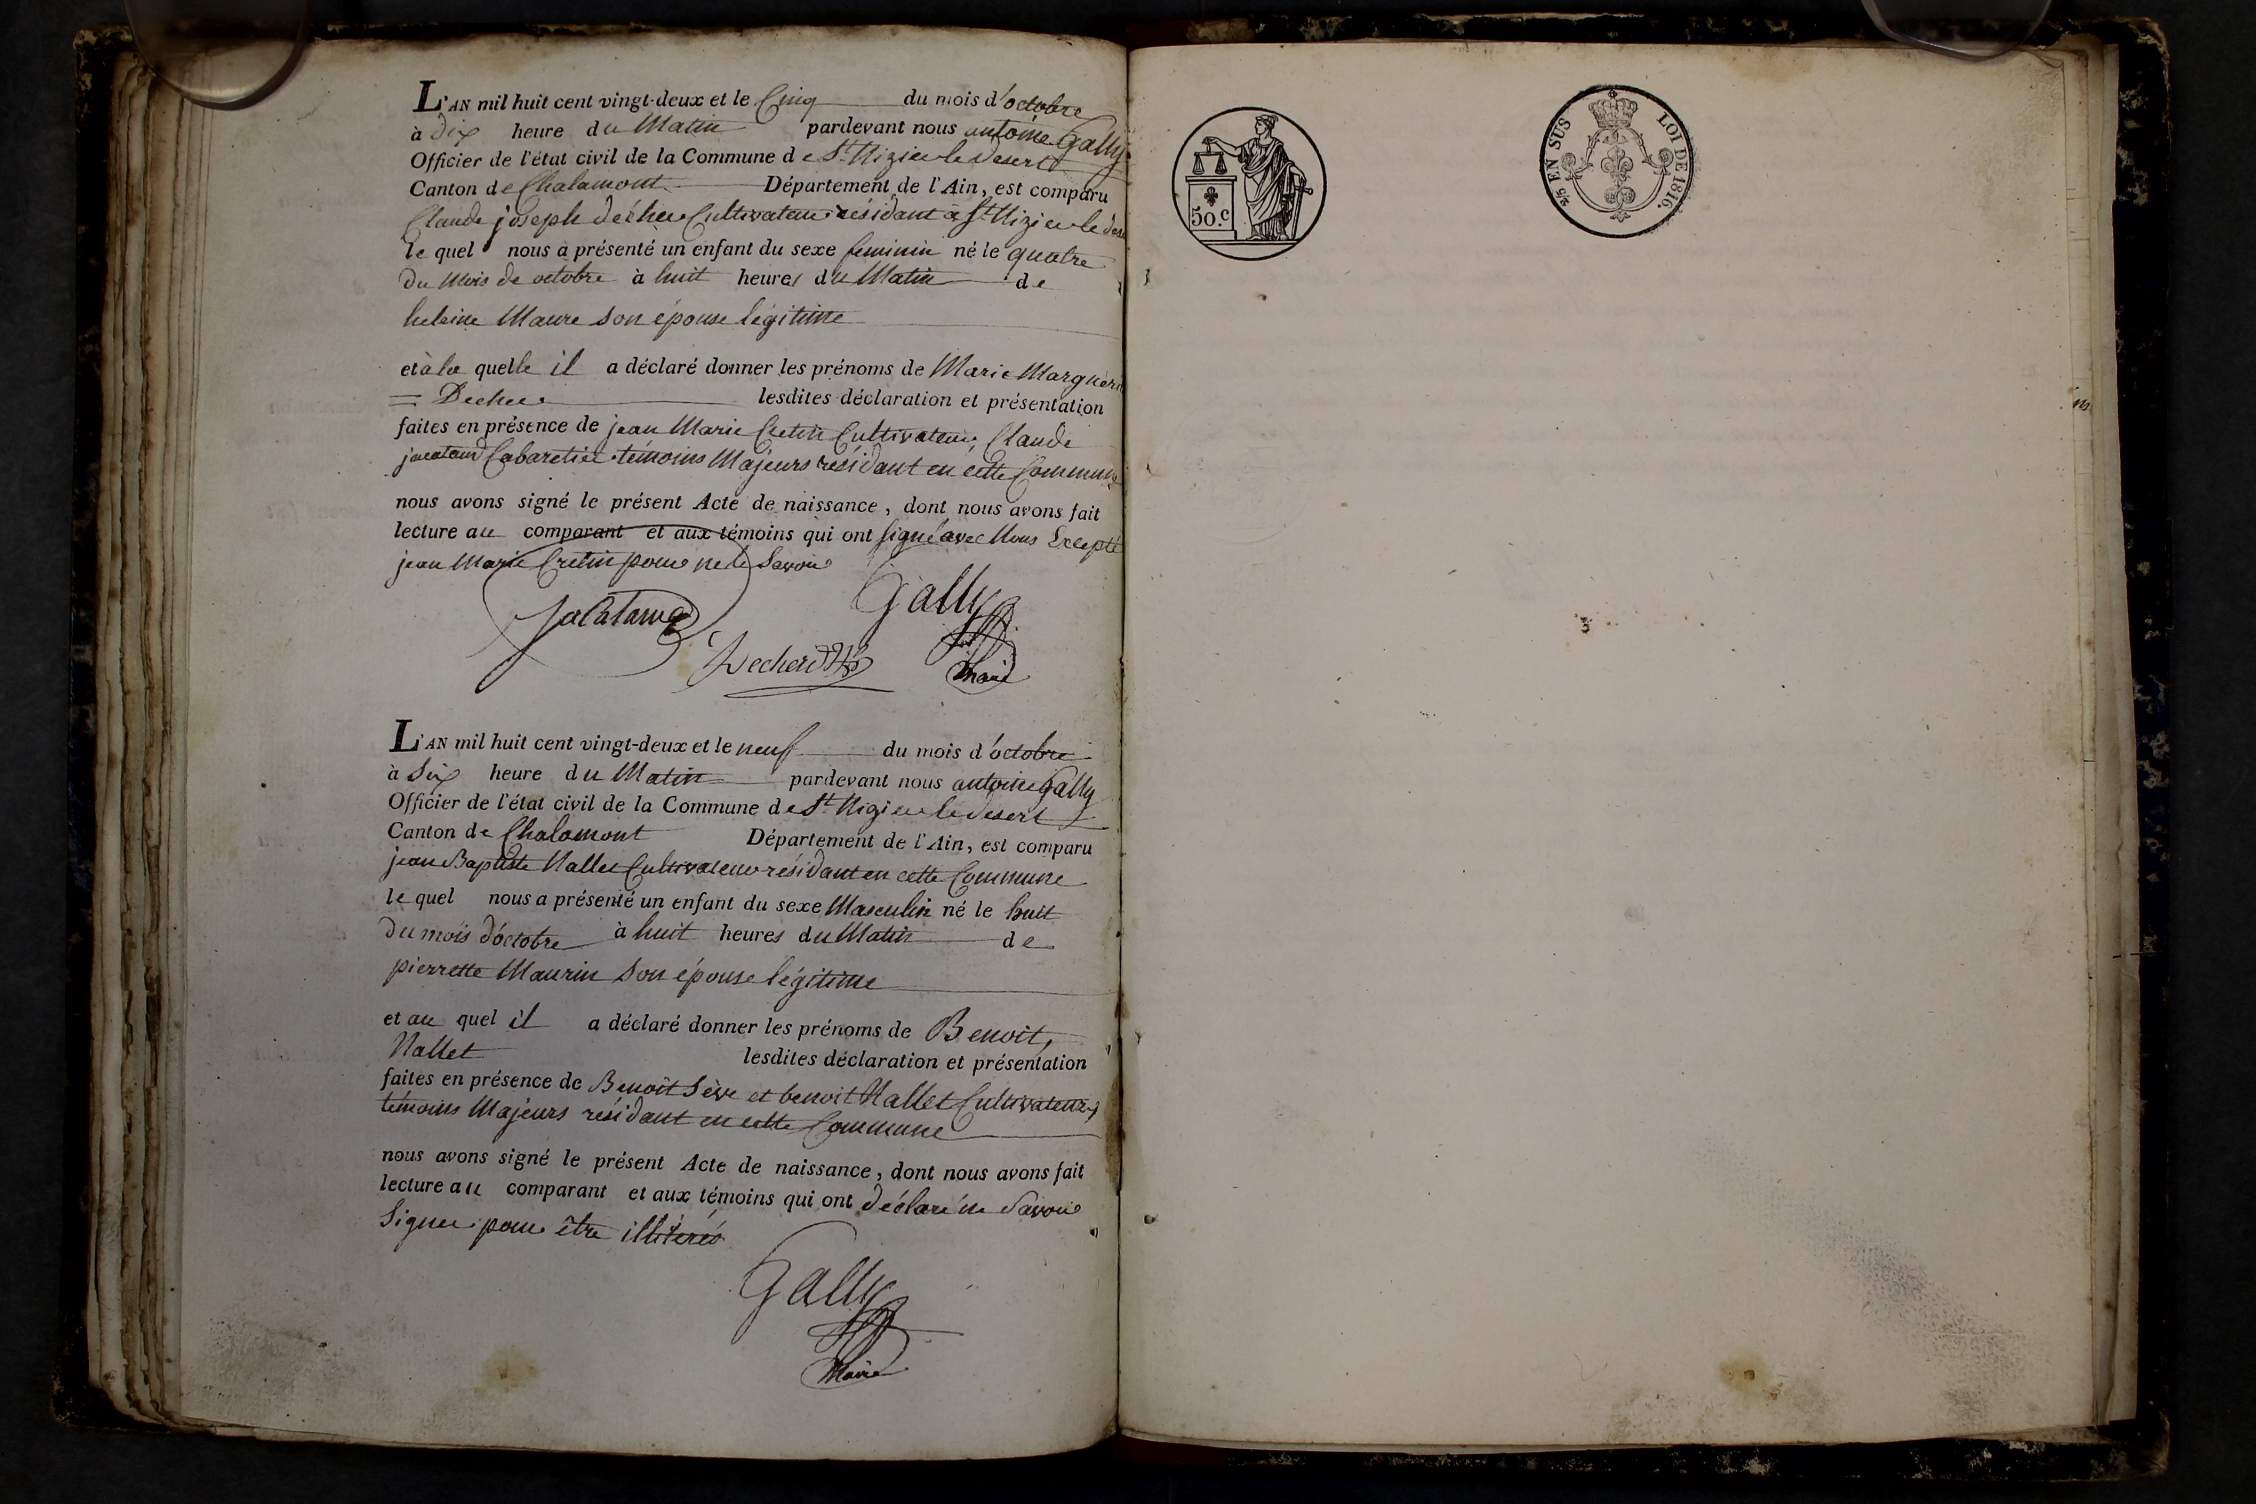 L'AN mil huit cent vingt-deux et le Cinq du mois d'octobre
à dix heure du Matin pardevant nous antoine Gally
Officier de l'état civil de la Commune de St Nizier le desert
Canton de Chalamont Département de l'Ain, est comparu
Claude joseph décher Cultivateur résidant à St Nizier le
le quel nous a présenté un enfant du sexe feminin né le quatre
du Mois de octobre à huit heures du Matin de
heleine Maure son épouse légitime
et à la quelle il a déclaré donner les prénoms de Marie
= Decher lesdites déclaration et présentation
faites en présence de jean Marie Cretin Cultivateur, Claude
Cabaretier témoins Majeurs résidant en cette Commune
nous avons signé le présent Acte de naissance, dont nous avons fait
lecture au comparant et aux témoins qui ont signé avec Nous Excepté
jean Marie Cretin pour ne le Savoir
Gally
Maire
L'AN mil huit cent vingt-deux et le neuf du mois d'octobre
à Six heure du Matin pardevant nous antoine Gally
Officier de l'état civil de la Commune de St Nizier le desert
Canton de Chalamont Département de l'Ain, est comparu
jean Baptiste Nallet Cultivateur résidant en cette Commune
le quel nous a présenté un enfant du sexe Masculin né le huit
du mois d'octobre à huit heures du Matin de
pierrette Maurin son épouse légitime
et au quel il a déclaré donner les prénoms de Benoit,
Nallet lesdites déclaration et présentation
faites en présence de Benoit Sève et benoit Nallet Cultivateurs
témoins Majeurs résidant en cette Commune
nous avons signé le présent Acte de naissance, dont nous avons fait
lecture au comparant et aux témoins qui ont déclaré ne Savoir
Signer pour être illitérés
Gally
Maire
50.c
EN SUS LOI DE 1816.